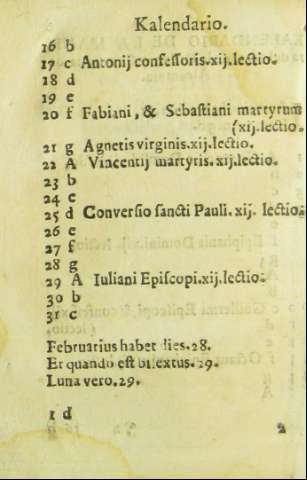 Kalendario.
16 b
17 c Antonij confessoris.xij.lectio.
18 d
19 e
20 f Fabiani, & Sebastiani martyrum
(xij.lectio.
21 g Agnetis virginis.xij.lectio.
22 A Vincentij martyris.xij.lectio.
23 b
24 c
25 d Conversio sancti Pauli. xij. lectio.
26 e
27 f
28 g
29 A Iuliani Episcopi.xij.lectio.
30 b
31 c
Februarius habet dies.28.
Et quando est bisextus.29.
Luna vero.29.
1 d
2